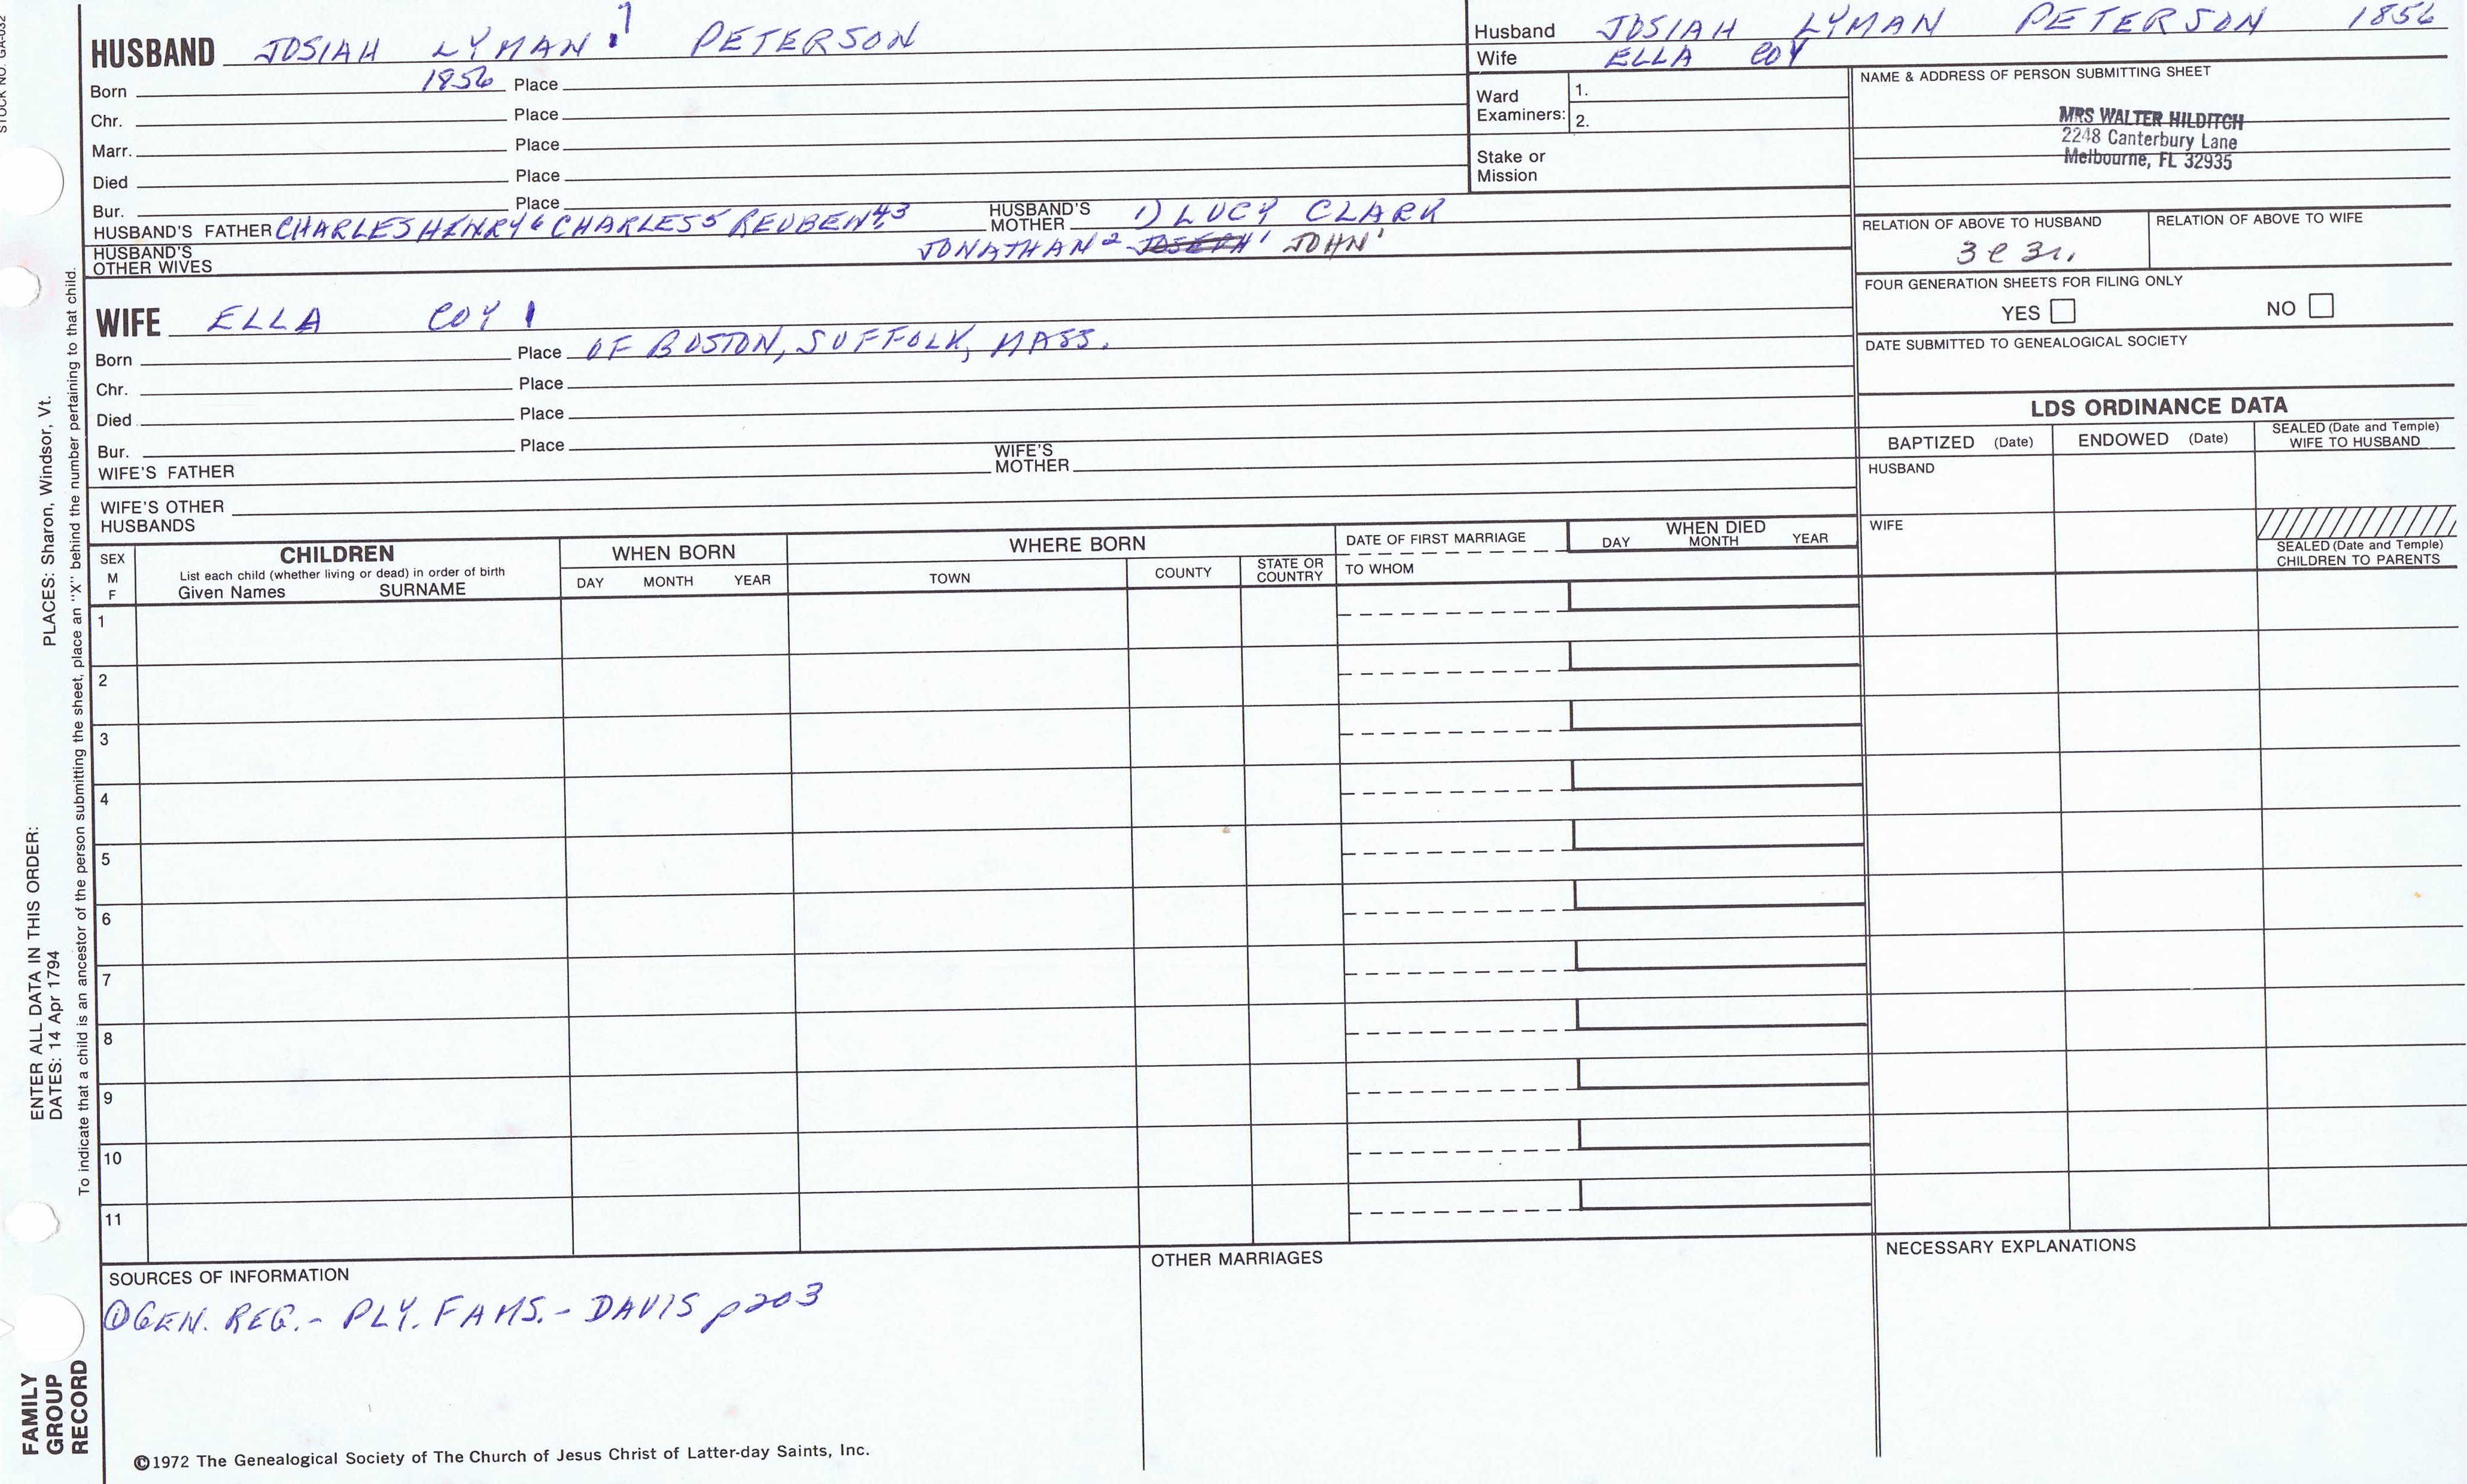 STOCK NO. GA-032
HUSBAND JOSIAH LYMAN 7 PETERSON
Born 1856 Place
Chr. Place
Marr. Place
Died Place
Bur. Place
HUSBAND'S FATHER CHARLES HENRY 6 CHARLES 5 REUBEN 4,3 HUSBAND'S MOTHER 1) LUCY CLARK
HUSBAND'S OTHER WIVES JONATHAN 2 JOSEPH 1 JOHN 1
WIFE ELLA COY 1
Born Place OF BOSTON, SUFFOLK, MASS.
Chr. Place
Died Place
Bur. Place
WIFE'S FATHER WIFE'S MOTHER
WIFE'S OTHER HUSBANDS
Husband JOSIAH LYMAN PETERSON 1856
Wife ELLA COY
Ward Examiners: 1.
2.
Stake or Mission
NAME & ADDRESS OF PERSON SUBMITTING SHEET
MRS WALTER HILDITCH
2248 Canterbury Lane
Melbourne, FL 32935
RELATION OF ABOVE TO HUSBAND RELATION OF ABOVE TO WIFE
3c3r.
FOUR GENERATION SHEETS FOR FILING ONLY
YES NO
DATE SUBMITTED TO GENEALOGICAL SOCIETY
LDS ORDINANCE DATA
BAPTIZED (Date) ENDOWED (Date) SEALED (Date and Temple) WIFE TO HUSBAND
HUSBAND
WIFE
SEALED (Date and Temple) CHILDREN TO PARENTS
SEX M F
CHILDREN
List each child (whether living or dead) in order of birth
Given Names SURNAME
WHEN BORN
DAY MONTH YEAR
WHERE BORN
TOWN COUNTY STATE OR COUNTRY
DATE OF FIRST MARRIAGE
TO WHOM
WHEN DIED
DAY MONTH YEAR
1
2
3
4
5
6
7
8
9
10
11
SOURCES OF INFORMATION
① GEN. REG. - PLY. FAMS. - DAVIS p203
OTHER MARRIAGES
NECESSARY EXPLANATIONS
©1972 The Genealogical Society of The Church of Jesus Christ of Latter-day Saints, Inc.
FAMILY GROUP RECORD
ENTER ALL DATA IN THIS ORDER:
DATES: 14 Apr 1794 PLACES: Sharon, Windsor, Vt.
To indicate that a child is an ancestor of the person submitting the sheet, place an "X" behind the number pertaining to that child.